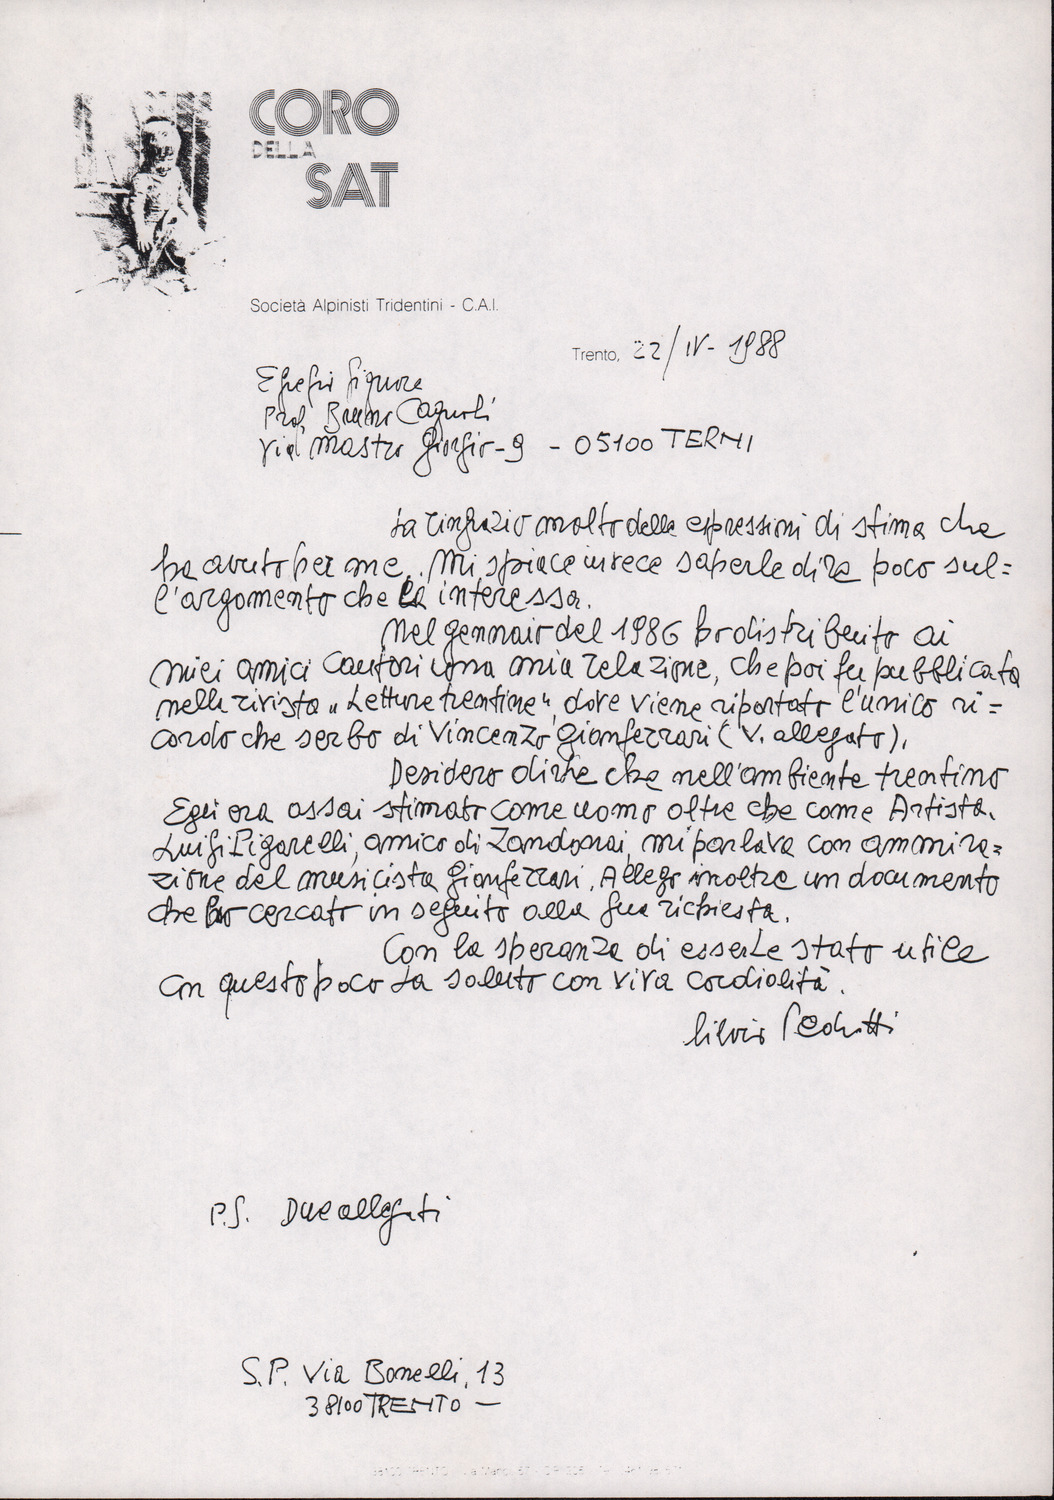 CORO
DELLA
SAT
Società Alpinisti Tridentini - C.A.I.
Trento, 22/IV- 1988
Egregio Signore
Prof. Bruno Cagnoli
Via Mastro Giorgio-9 - 05100 TERNI
La ringrazio molto delle espressioni di stima che
ha avuto per me. Mi spiace invece saperle dire poco sul=
l'argomento che La interessa.
Nel gennaio del 1986 ho distribuito ai
miei amici Cantori una mia relazione, che poi fu pubblicata
nella rivista „Letture trentine", dove viene riportato l'unico ri=
cordo che serbo di Vincenzo Gianferrari (V. allegato).
Desidero dirLe che nell'ambiente trentino
Egli era assai stimato come uomo oltre che come Artista.
Luigi Pigarelli, amico di Zandonai, mi parlava con ammira=
zione del musicista Gianferrari. Allego inoltre un documento
che ho cercato in seguito alla Sua richiesta.
Con la speranza di esserLe stato utile
con questo poco La saluto con viva cordialità.
Silvio Pedrotti
P.S. Due allegati
S.P. Via Bonelli, 13
38100 TRENTO —